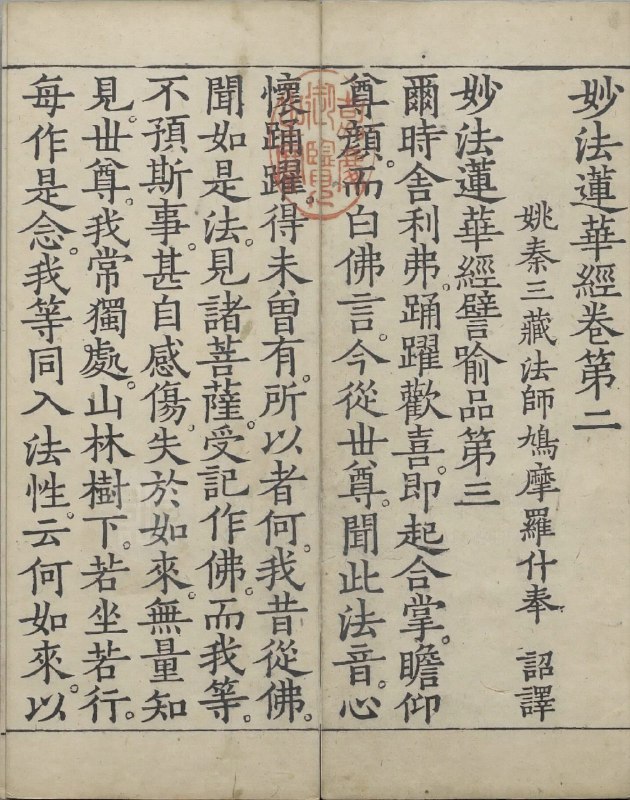 妙法蓮華經卷第二
姚秦三藏法師鳩摩羅什奉 詔譯
妙法蓮華經譬喻品第三
爾時舍利弗。踊躍歡喜。即起合掌。瞻仰
尊顏。而白佛言。今從世尊。聞此法音。心
懷踊躍。得未曾有。所以者何。我昔從佛。
聞如是法。見諸菩薩。受記作佛。而我等。
不預斯事。甚自感傷。失於如來。無量知
見。世尊。我常獨處。山林樹下。若坐若行。
每作是念。我等同入法性。云何如來。以